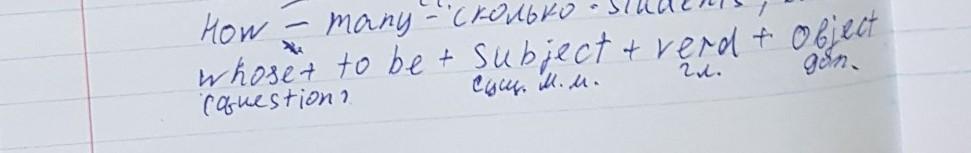 How - many - сколько - students,
whose + to be + subject + verd + object
сущ. м.и. гл. доп.
(question)